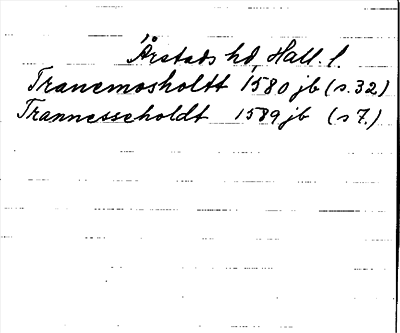 Årstads hd, Hall. l.
Tranemosholtt 1580 jb (s. 32)
Trannesseholdt 1589 jb (s 7.)